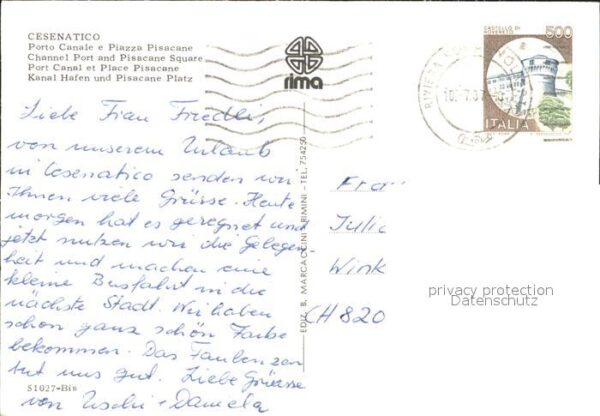 CESENATICO
Porto Canale e Piazza Pisacane
Channel Port and Pisacane Square
Port Canal et Place Pisacane
Kanal Hafen und Pisacane Platz
rima
CASTELLO DI
ROVERETO
500
ITALIA
RIVIERA
Liebe Frau Friedli,
von unserem Urlaub
in Cesenatico senden wir
Ihnen viele Grüsse. Heute
morgen hat es geregnet und
jetzt nutzen wir die Gelegen
heit und machen eine
kleine Busfahrt in die
nächste Stadt. Wir haben
schon ganz schön Farbe
bekommen. Das Faulenzen
tut uns gut. Liebe Grüsse
von Uschi + Daniela
EDIZ. B. MARCACCINI RIMINI - TEL. 754250
Frau
Julia
Wink
CH 820
privacy protection
Datenschutz
S1027-Bis